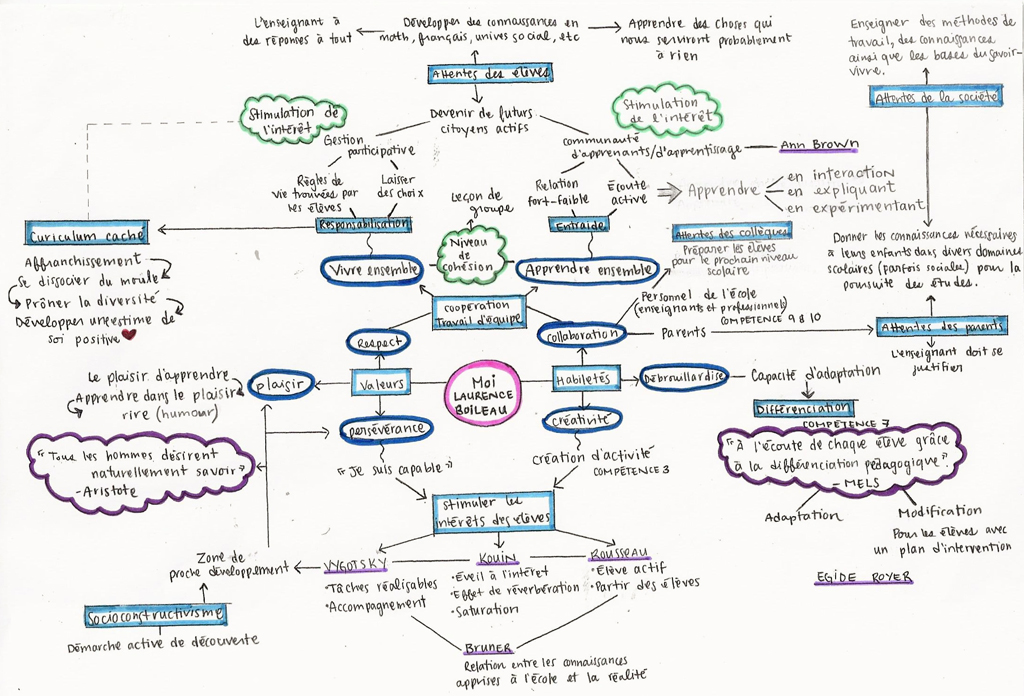 L'enseignant à
des réponses à tout
Développer des connaissances en
math, français, univers social, etc
Apprendre des choses qui
nous serviront probablement
à rien
Enseigner des méthodes de
travail, des connaissances
ainsi que les bases du savoir-
vivre.
Attentes des élèves
Attentes de la société
Stimulation de
l'intérêt
Devenir de futurs
citoyens actifs
Stimulation
de l'intérêt
Gestion
participative
communauté
d'apprenants/d'apprentissage
Ann Brown
Règles de
vie trouvées par
les élèves
Laisser
des choix
Leçon de
groupe
Relation
fort-faible
Écoute
active
Apprendre
en interaction
en expliquant
en expérimentant
Curiculum caché
Responsabilisation
Niveau
de
cohésion
Entraide
Attentes des collègues
Préparer les élèves
pour le prochain niveau
scolaire
Donner les connaissances nécessaires
à leurs enfants dans divers domaines
scolaires (parfois sociales) pour la
poursuite des études.
Affranchissement
Se dissocier du moule
Prôner la diversité
Développer une estime de
soi positive
Vivre ensemble
Apprendre ensemble
coopération
Travail d'équipe
Personnel de l'école
(enseignants et professionnel)
COMPÉTENCE 9 & 10
Respect
collaboration
Parents
Attentes des parents
L'enseignant doit se
justifier
Le plaisir d'apprendre
Apprendre dans le plaisir
rire (humour)
plaisir
Valeurs
Moi
LAURENCE
BOILEAU
Habiletés
Débrouillardise
Capacité d'adaptation
Différenciation
COMPÉTENCE 7
persévérance
créativité
"Tous les hommes désirent
naturellement savoir"
-Aristote
"Je suis capable"
création d'activité
COMPÉTENCE 3
"À l'écoute de chaque élève grâce
à la différenciation pédagogique".
- MELS
stimuler les
intérêts des élèves
Adaptation
Modification
Pour les élèves avec
un plan d'intervention
Zone de
proche développement
VYGOTSKY
•Tâches réalisables
•Accompagnement
KOUIN
•Éveil à l'intéret
•Effet de réverbération
•Saturation
ROUSSEAU
•Élève actif
•Partir des élèves
EGIDE ROYER
Socioconstructivisme
Démarche active de découverte
BRUNER
Relation entre les connaissances
apprises à l'école et la réalité